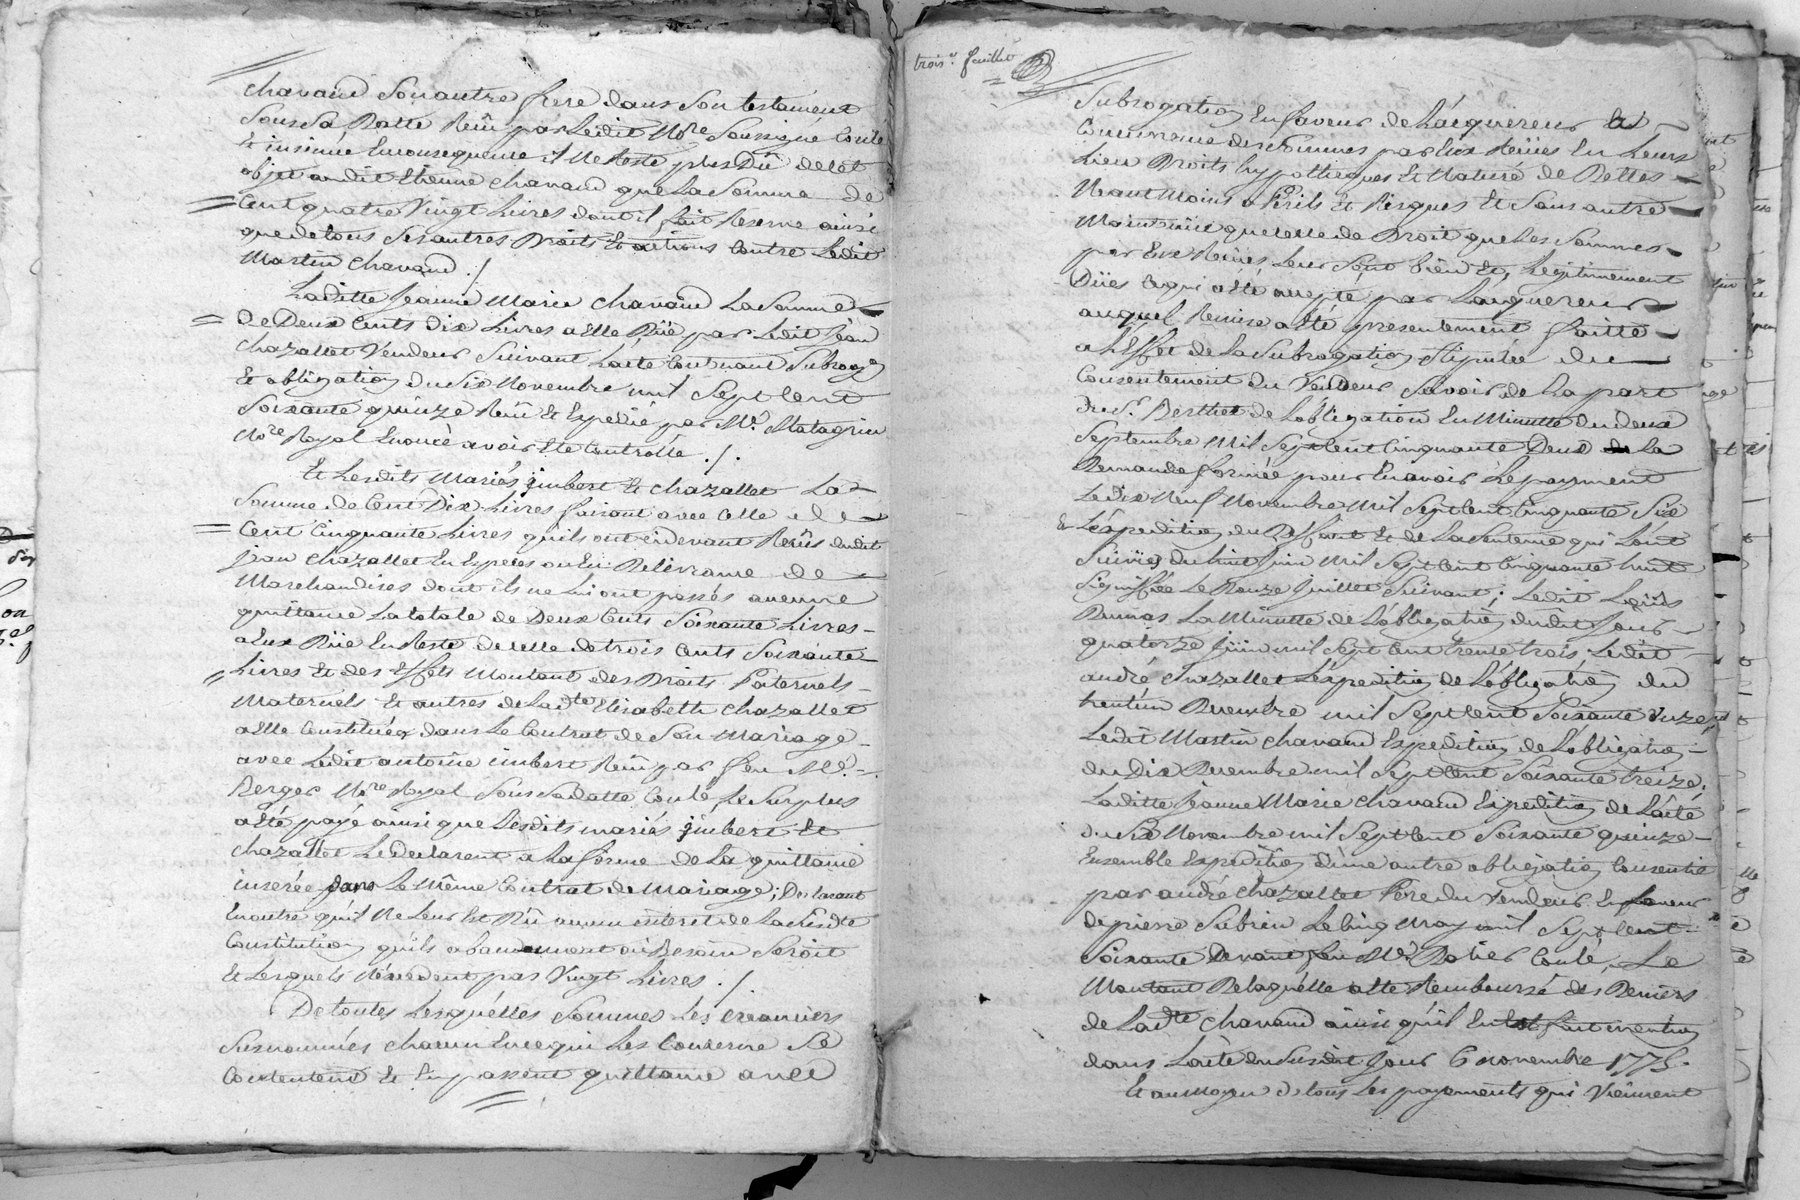 Chavand Son autre frere dans Son testament
Sous Sa Datte Reçû par Ledit No.re Soussigné Conlé
Et insinüé En consequence il Ne Reste plus Dû de cet
objet audit Etienne Chavand que La Somme de
Cent quatre Vingt Livres dont il fait Reserve ainsi
que de tous Ses autres Droits Et actions Contre Ledit
Martin Chavand ./
Laditte Jeanne Marie Chavand La Somme
de Deux Cents Dix Livres a Elle Düe par Ledit Jean
Chazallet Vendeur Suivant L'acte Contenant Subrog.on
Et obligation du Six Novembre mil Sept Cent
Soixante quinze Reçû Et Expedié par M.e Matagrin
No.re Royal Enoncé avoir Eté Controllé ./.
Et Lesdits Mariés jimbert Et Chazallet La
Somme de Cent Dix Livres faisant avec Celle de
Cent Cinquante Livres qu'ils ont cy devant Reçûs dudit
jean Chazallet En Especes ou En Delivrance de
Marchandises dont ils ne Lui ont passés aucune
quittance La totale de Deux Cents Soixante Livres
a Eux Düe En Reste de celle de trois Cents Soixante
Livres Et des Effets Montant des Droits Paternels
Maternels Et autres de La d.te Elisabeth Chazallet
a Elle Constitués dans Le Contrat de Son Mariage
avec Ledit antoine imbert Reçû par feu M.e
Berger No.re Royal Sous Sa datte Conlé Le Surplus
a Eté payé ainsi que Lesdits mariés jimbert Et
Chazallet Le Declarent a La forme de La quittance
inserée dans Le Même Contrat de Mariage; Declarant
En outre qu'il Ne Leur Est Dû aucun interet de La Susd.te
Constitution qu'ils abandonnent où Besoin Seroit
Et Lesquels N'excedent pas Vingt Livres ./.
De toutes Lesquélles Sommes Les Creanciers
Susnommés Chacun En ce qui Les Concerne Se
Contentent Et En passent quittance avec
trois.e feuillet
Subrogation En faveur de L'acquereur a
Concurrence des Sommes par Eux Reçües En Leurs
Lieu Droits hypotheques Et Nature de Dettes
Neantmoins a Perils Et Risques Et Sans autre
Maintenüe que Celle de Droit que Les Sommes
par Eux Reçües Leur Sont bien Et Legitimement
Düés Ce qui a Eté accepté par L'acquereur
auquel Remise a Eté presentement faitte
a L'Effet de La Subrogation Stipulée du
Consentement du Vendeur Savoir de La part
du S.r Berthet de L'obligation En Minutte du deux
Septembre Mil Sept Cent Cinquante Deux La
Demande formée pour En avoir Le payment
Le dix Neuf Novembre Mil Sept Cent Cinquante Six
Et L'expedition du Deffaut Et de La Sentence qui L'ont
Suivies du huit juin Mil Sept Cent Cinquante huit
Signiffiée Le Onze Juillet Suivant; Ledit Loüis
Dumas La Minutte de L'obligation dudit Jour
quatorze Juin mil Sept Cent trente trois Ledit
andré Chazallet L'expedition de L'obligation du
trentiun Decembre mil Sept Cent Soixante Onze
Ledit Martin Chavand Expedition de L'obligation
du Dix Decembre mil Sept Cent Soixante treize.
Laditte Jeanne Marie Chavand Expedition de L'acte
du Six Novembre mil Sept Cent Soixante quinze
Ensemble Expedition d'une autre obligation Consentie
par andré Chazallet Pere du Vendeur En faveur
de pierre Subrin Le Cinq May mil Sept Cent
Soixante Devant feu M.e Conlé, Le
Montant De laquélle a Eté Remboursé des Deniers
de La d.te Chavand ainsi qu'il En Est fait mention
dans L'acte du Susdit Jour 6 novembre 1775.
Et au Moyen de tous Les payements qui Viennent